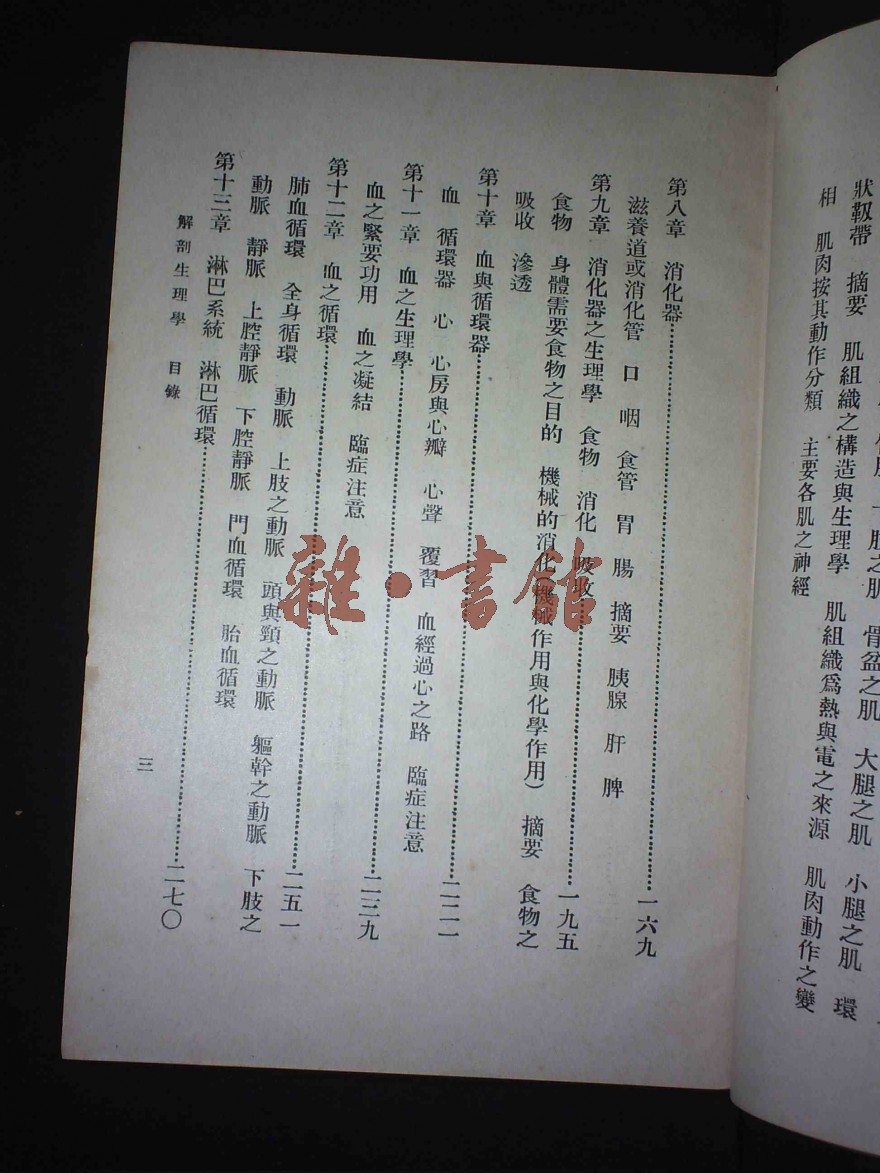 狀靱帶　摘要　肌組織之構造與生理學　肌組織爲熱與電之來源　肌肉動作之變
相　肌肉按其動作分類　主要各肌之神經
之肌　骨盆之肌　大腿之肌　小腿之肌　環
第八章　消化器…………一六九
滋養道或消化管　口　咽　食管　胃　腸　摘要　胰腺　肝　脾
第九章　消化器之生理學　食物　消化　吸收…………一九五
食物　身體需要食物之目的　機械的消化(機械作用與化學作用)　摘要　食物之
吸收　滲透
第十章　血與循環器…………二二一
血　循環器　心　心房與心瓣　心聲　覆習　血經過心之路　臨症注意
第十一章　血之生理學…………二三九
血之緊要功用　血之凝結　臨症注意
第十二章　血之循環…………二五一
肺血循環　全身循環　動脈　上肢之動脈　頭與頸之動脈　軀幹之動脈　下肢之
動脈　靜脈　上腔靜脈　下腔靜脈　門血循環　胎血循環
第十三章　淋巴系統　淋巴循環…………二七〇
解剖生理學　目錄
三
雜·書館